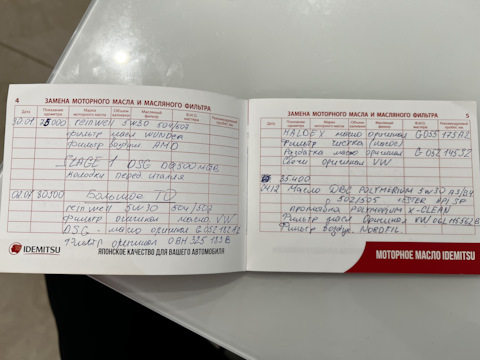 4
ЗАМЕНА МОТОРНОГО МАСЛА И МАСЛЯНОГО ФИЛЬТРА
Дата Показание одометра Марка моторного масла Объем заливки Масляный фильтр Ф.И.О. мастера Рекомендуемый пробег, км
30.01 25.000 reinwell 5W30 504/507
фильтр масл WUNDER
Фильтр воздуш AMD
STAGE 1 DSG DQ500
колодки перед италия
02.07 30.500 Большое ТО
reinwell 5W30 504/507
фильтр оригинал масло VW
DSG - масло оригинал G 052 182 A2
Фильтр оригинал 0BH 325 183 B
IDEMITSU
ЯПОНСКОЕ КАЧЕСТВО ДЛЯ ВАШЕГО АВТОМОБИЛЯ
5
ЗАМЕНА МОТОРНОГО МАСЛА И МАСЛЯНОГО ФИЛЬТРА
Дата Показание одометра Марка моторного масла Объем заливки Масляный фильтр Ф.И.О. мастера Рекомендуемый пробег, км
HALDEX масло оригинал G 055 175 A2
Фильтр чистка (насос)
Раздатка масло оригинал G 052 145 S2
Свечи оригинал VW
35.400
04.12 Масло ДВС POLYMERIUM 5W30 A3/B4
502/505 ESTER API SP
промывка POLYMERIUM X-CLEAN
Фильтр масл Оригинал VW 06L 115 562 B
Фильтр воздуш. NORDFIL.
МОТОРНОЕ МАСЛО IDEMITSU